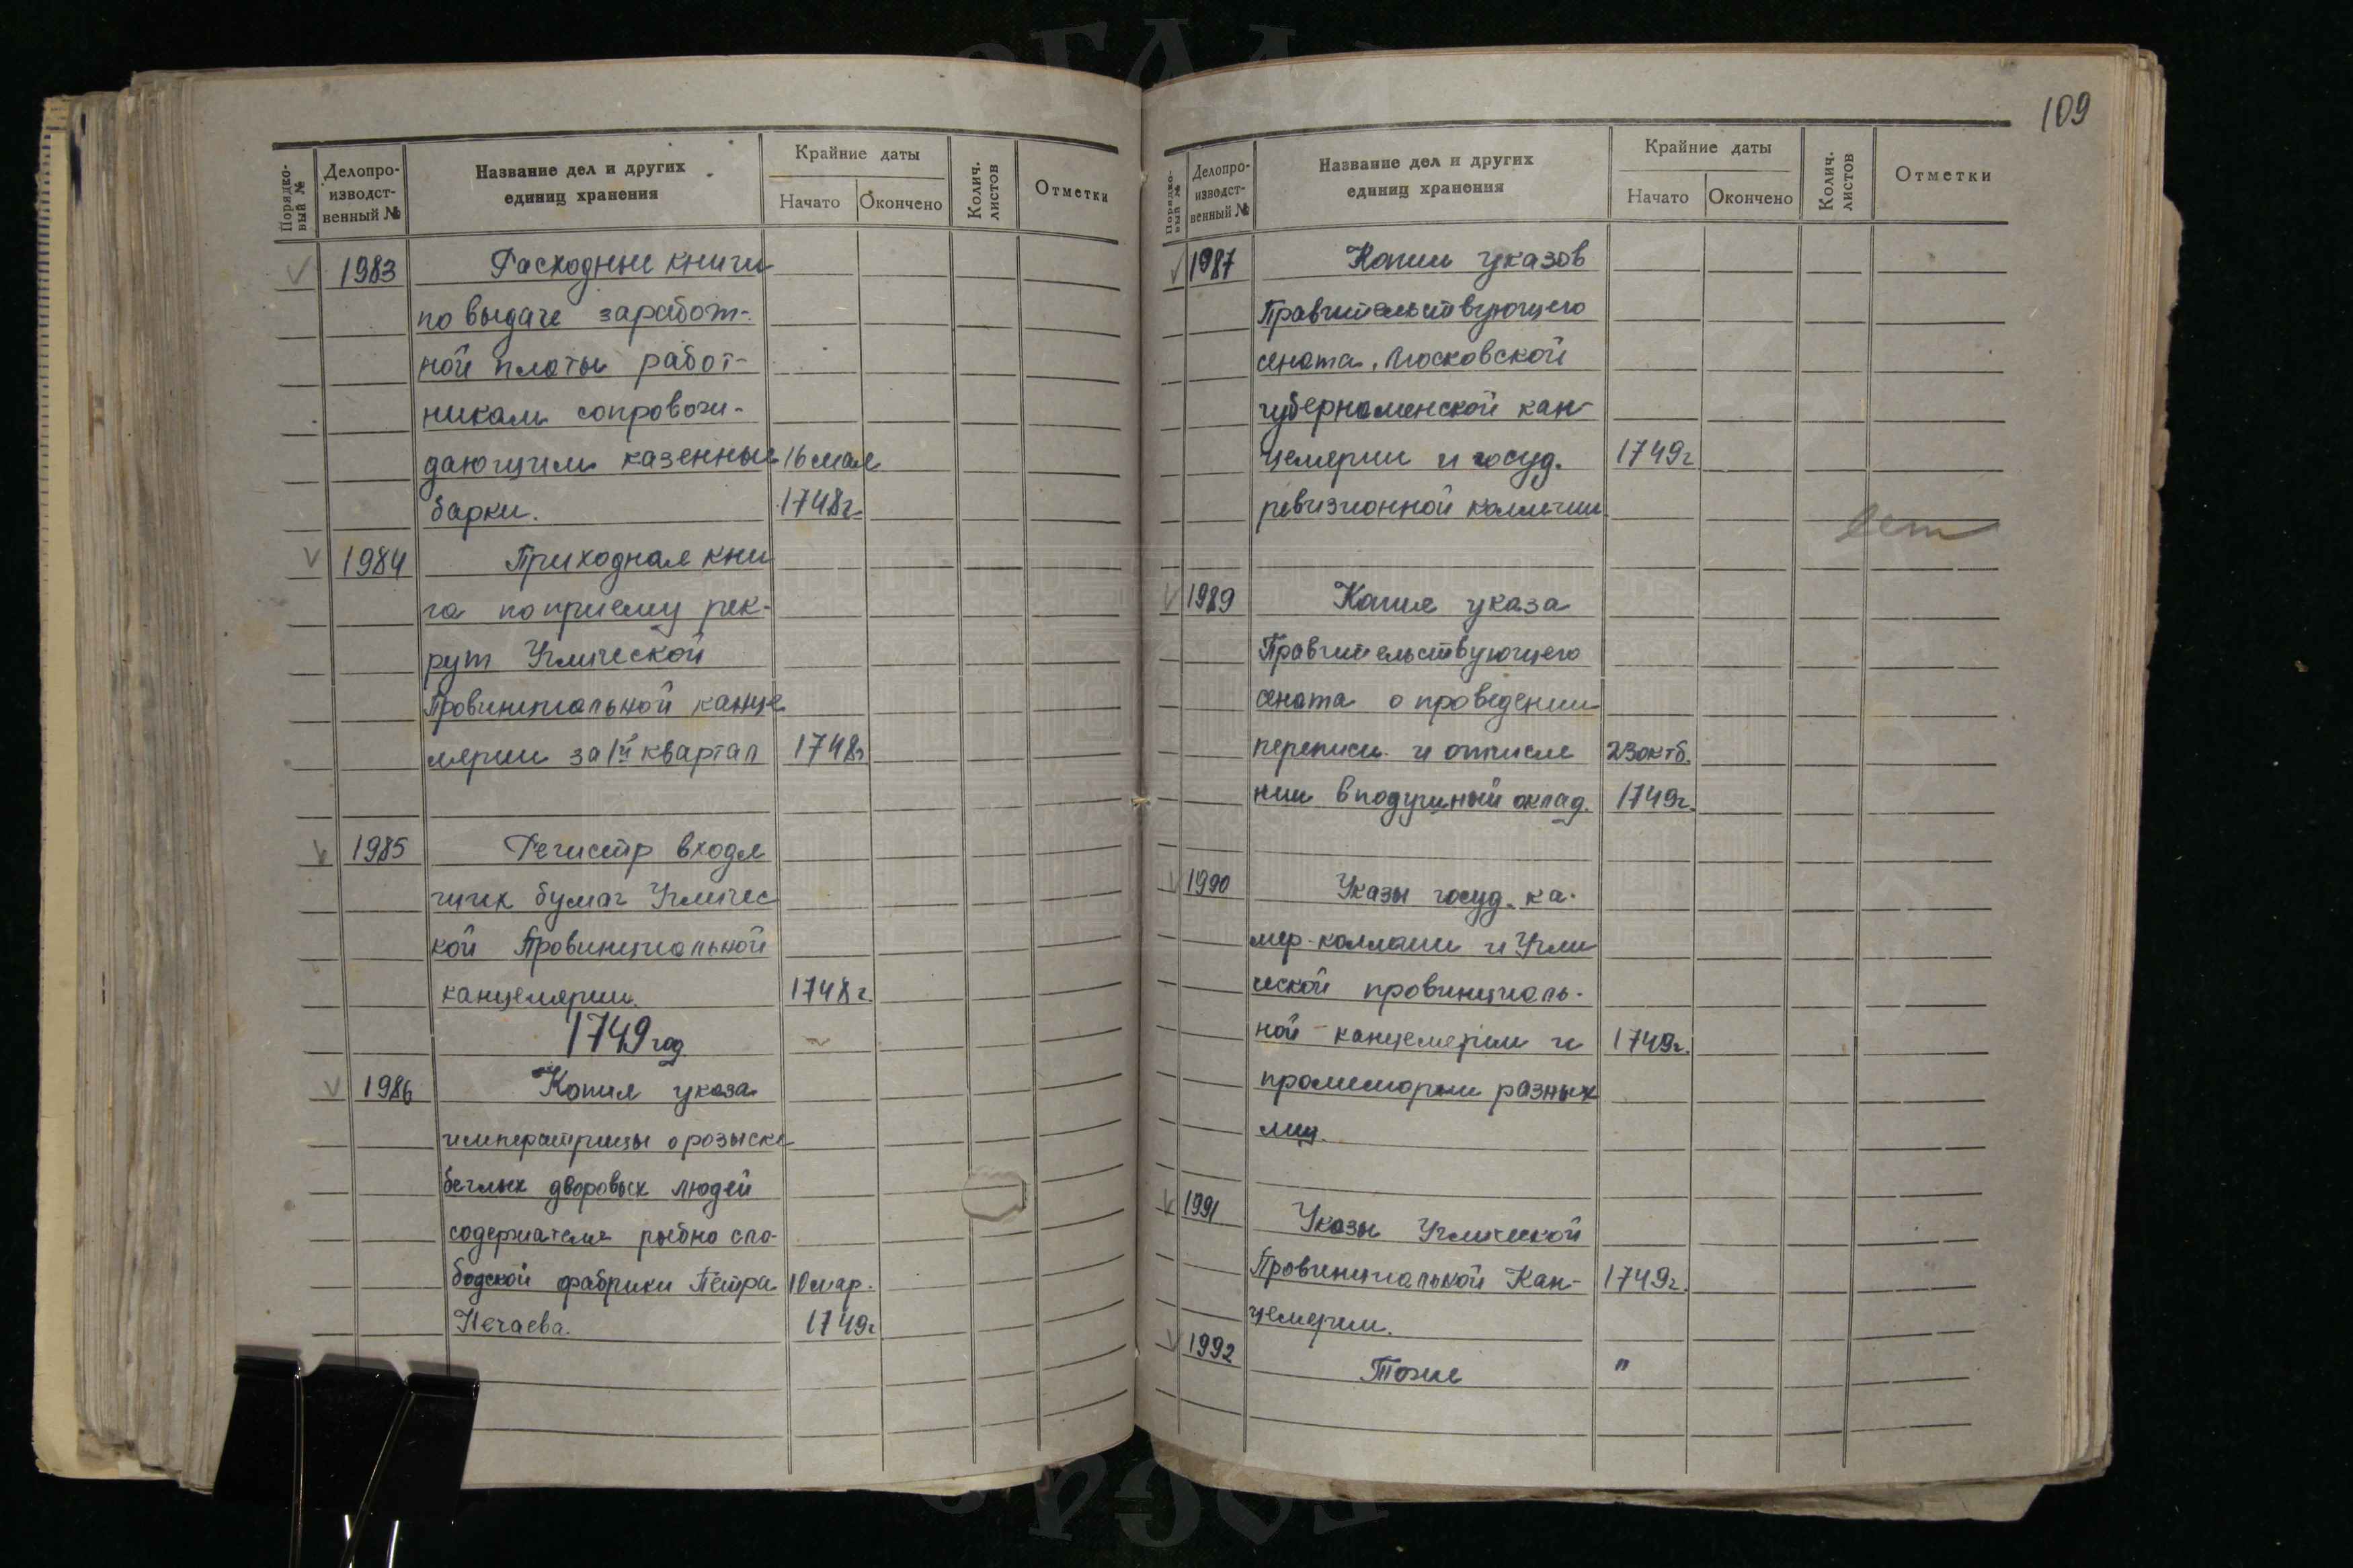 109
Порядко-
вый №
Делопро-
изводст-
венный №
Название дел и других
единиц хранения
Крайние даты
Начато
Окончено
Колич.
листов
Отметки
1983 Расходные книги
по выдаче заработ-
ной платы работ-
никам сопровож-
дающим казенные 16 мая
барки. 1748г.
1984 Приходная кни
га по приему рек-
рут Угличской
Провинциальной канце
лярии за 1й квартал 1748г
1985 Регистр входя
щих бумаг Угличес
кой Провинциальной
канцелярии. 1748г.
1749 год
1986 Копия указа
императрицы о розыске
беглых дворовых людей
содержателя рыбно сло-
бодской фабрики Петра 10 мар.
Нечаева. 1749г
Порядко-
вый №
Делопро-
изводст-
венный №
Название дел и других
единиц хранения
Крайние даты
Начато
Окончено
Колич.
листов
Отметки
1987 Копии указов
Правительствующего
сената, Московской
губернаменской кан-
целярии и госуд. 1749г
ревизионной коллегии
1989 Копия указа
Правительствующего
сената о проведении
переписи и отписле 23 октб.
нии в подушный оклад. 1749г.
1990 Указы госуд. ка-
мер-коллегии и Угли
ческой провинциаль-
ной канцелярии и 1749г.
промемории разных
лиц.
1991 Указы Угличской
Провинциальной Кан- 1749г.
целярии.
1992 Тоже "